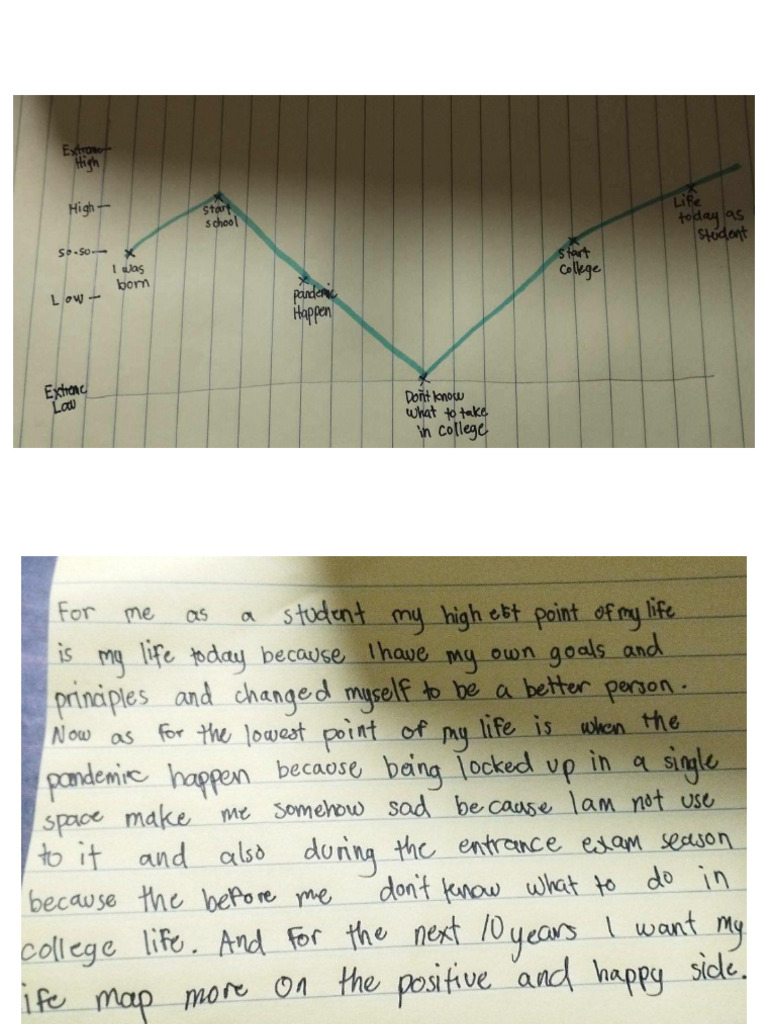 Extreme
High
High
So-so
Low
Extreme
Low
I was
born
Start
school
pandemic
Happen
Don't know
what to take
in college
Start
college
Life
today as
student
For me as a student my highest point of my life
is my life today because I have my own goals and
principles and changed myself to be a better person.
Now as for the lowest point of my life is when the
pandemic happen because being locked up in a single
space make me somehow sad because I am not use
to it and also during the entrance exam season
because the before me don't know what to do in
college life. And for the next 10 years I want my
ife map more on the positive and happy side.